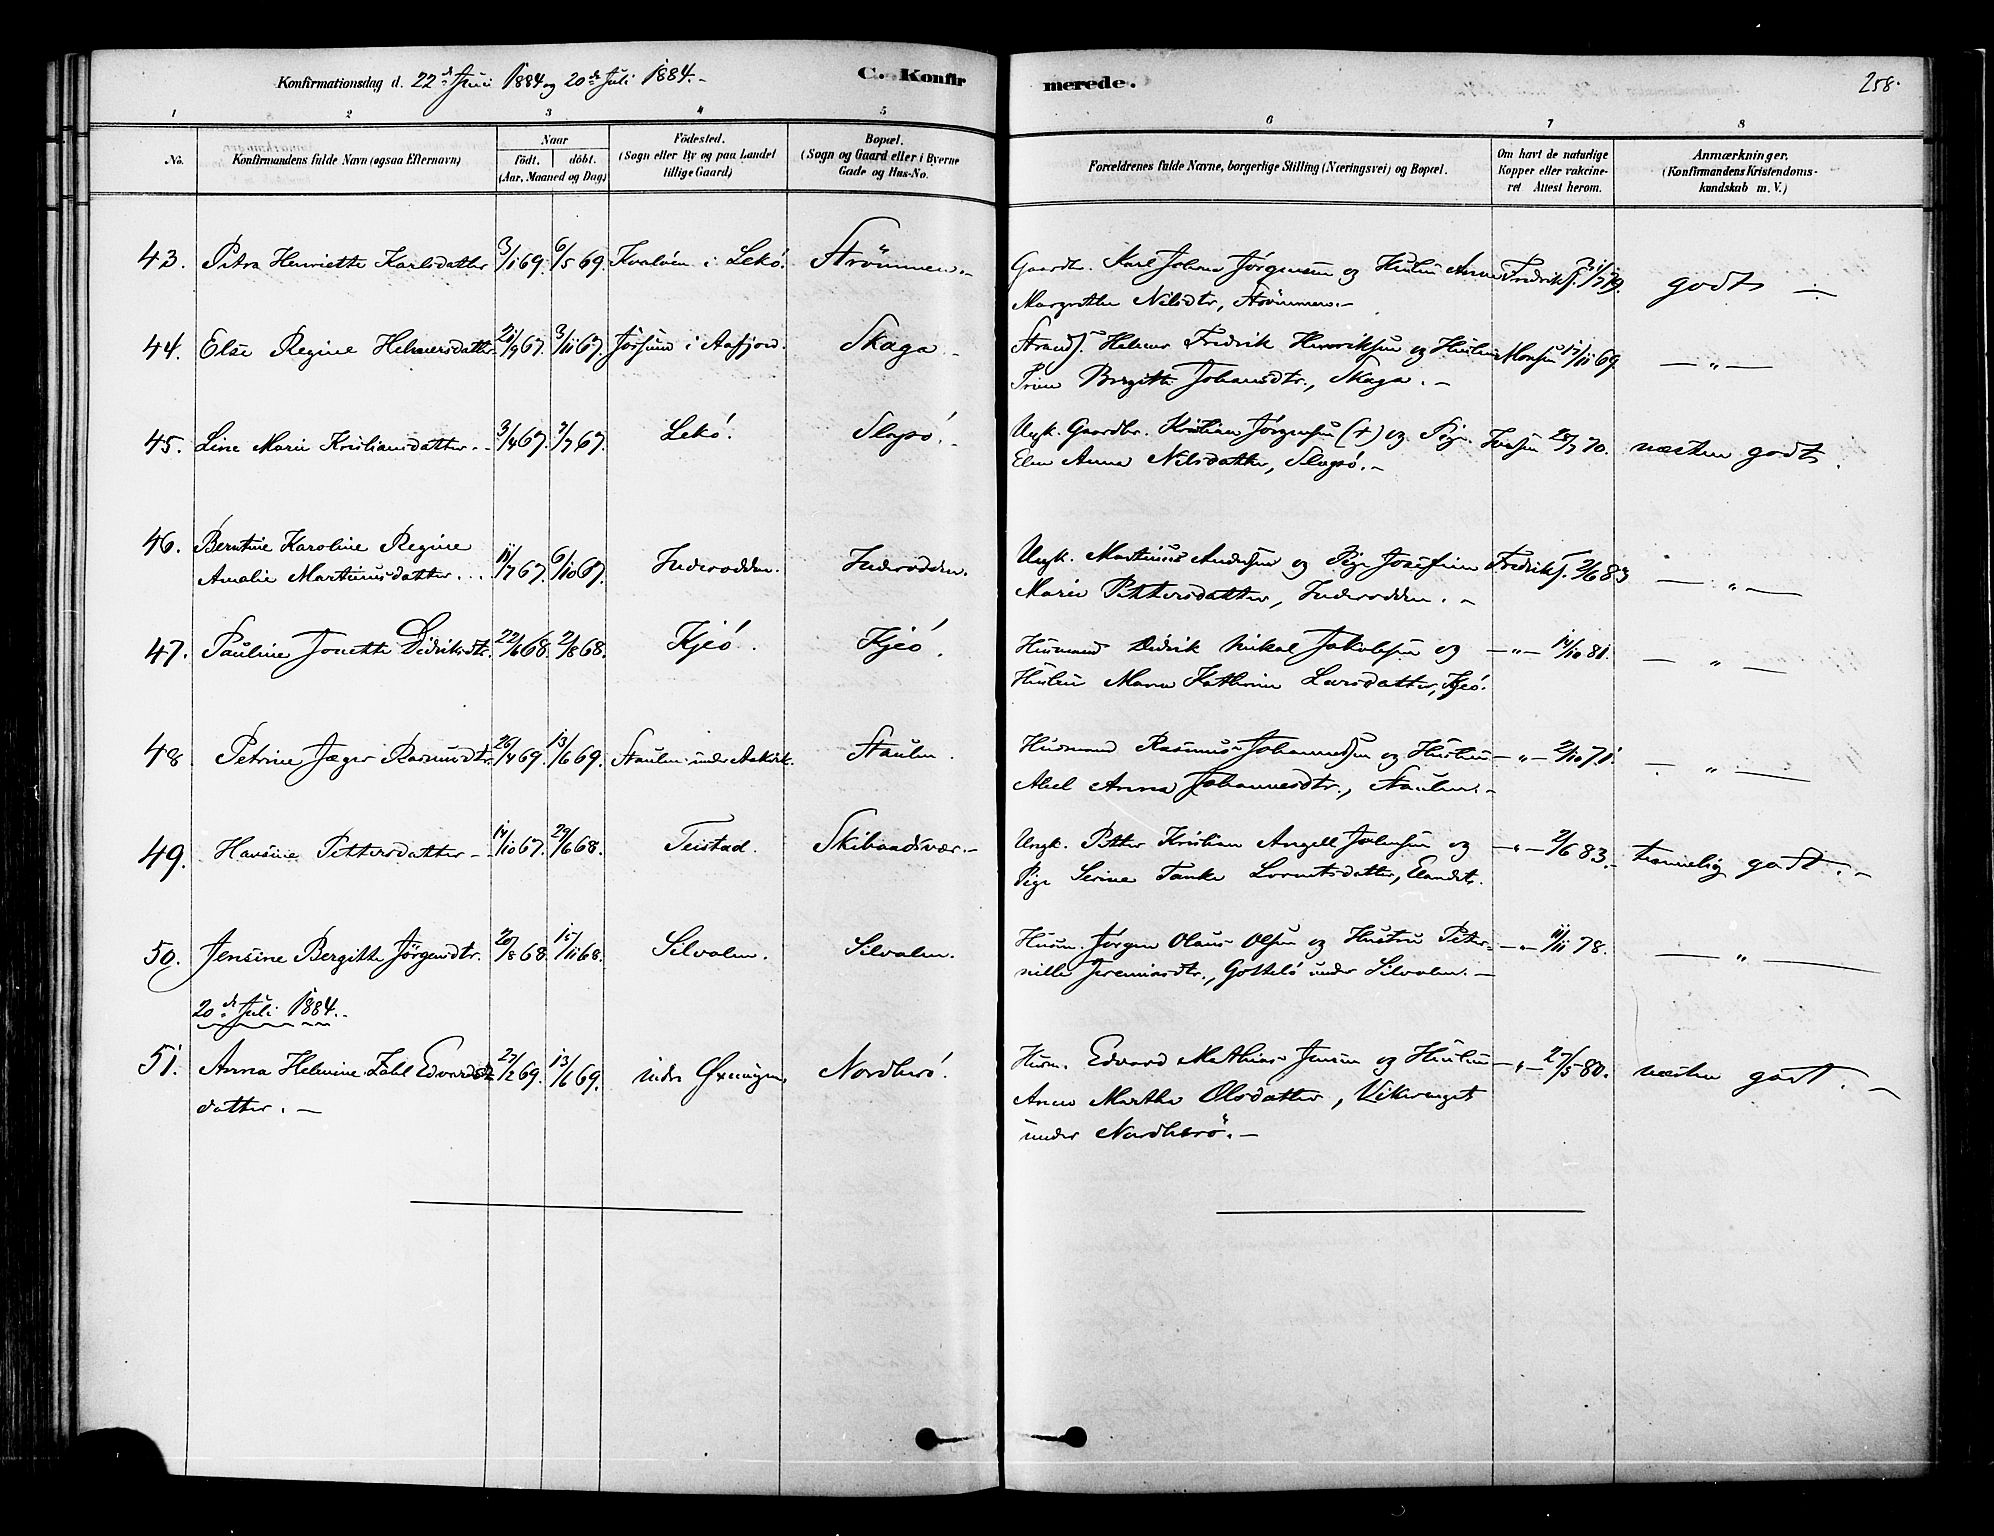 Konfirmationsdag d. 22de Juni 1884 og 20de Juli 1884.-
C. Konfirmerede.
258.
1 2 3 4 5 6 7 8
No.
Konfirmandens fulde Navn (ogsaa Efternavn)
Naar
født. døbt.
(Aar, Maaned og Dag)
Fødested.
(Sogn eller By og paa Landet
tillige Gaard)
Bopæl.
(Sogn og Gaard eller i Byerne
Gade og Hus-No.
Forældrenes fulde Navne, borgerlige Stilling (Næringsvei) og Bopæl.
Om havt de naturlige
Kopper eller vakcine-
ret Attest herom.
Anmærkninger.
(Konfirmandens Kristendoms-
kundskab m. V.)
43. Petra Henriette Karlsdatter 3/1 69. 6/5 69. Kvaløen i Lekö. Strömmen.-
Gaardbr. Karl Johan Jörgensen og Hustru Anna Fredriks. 21/7 79. godt -
Margrethe Nilsdtr, Strömmen.-
44. Else Regine Helmersdatter 21/9 67. 3/11 67. Jössund i Aafjord. Skaga.-
Strands. Helmer Fredrik Henriksen og Hustru Monsen 17/11 69. - " -
Trine Bergitte Johansdtr., Skaga.-
45. Line Marie Kristiansdatter.- 3/4 67. 7/7 67. Lekö. Slapö.-
Ungk. Gaardbr. Kristian Jörgensen (+) og Pige Ivarsen 28/7 70. næsten godt.
Elen Anna Nilsdatter, Slapö.-
46. Berntine Karoline Regine
Amalie Martinusdatter... 11/7 67. 6/10 67. Inderodden. Inderodden.
Ungk. Martinus Andersen og Pige Josefine Fredriks. 2/6 83 - " -
Marie Pettersdatter, Inderodden.-
47. Pauline Jonette Didriksdtr. 22/6 68. 2/8 68. Kjeö. Kjeö.
Husmand Didrik Mikal Jakobsen og - " - 14/10 81. - " -
Hustru Maren Kathrine Larsdatter, Kjeö.
48 Petrine Jæger Rasmusdtr. 26/4 69. 13/6 69. Staulen under Aakvik. Staulen.
Husmand Rasmus Johannessen og Hustru - " - 2/10 71. - " -
Abel Anna Johannesdtr., Staulen.-
49. Hansine Pettersdatter - 14/10 67. 29/6 68. Teistad. Skibaadsvær.-
Ungk. Petter Kristian Angell Johnsen og - " - 2/6 83.- temmelig godt.-
Pige Serine Tanke Lorntsdatter,
50. Jensine Bergitte Jörgensdtr. 20/8 68 15/11 68. Silvalen. Silvalen.
Husm. Jörgen Olaus Olsen og Hustru Peter- - " - 11/11 78. - " -
nille Jeremiasdtr., under Silvalen.-
20de Juli 1884.-
51. Anna Helmine Zahl Edvards- 27/2 69. 13/6 69. under Öxningen. Nordherö.
datter.-
Husm. Edvard Mathias Jensen og Hustru - " - 27/5 80. næsten godt.-
Anne Marthe Olsdatter, Vikvaaget
under Nordherö.-